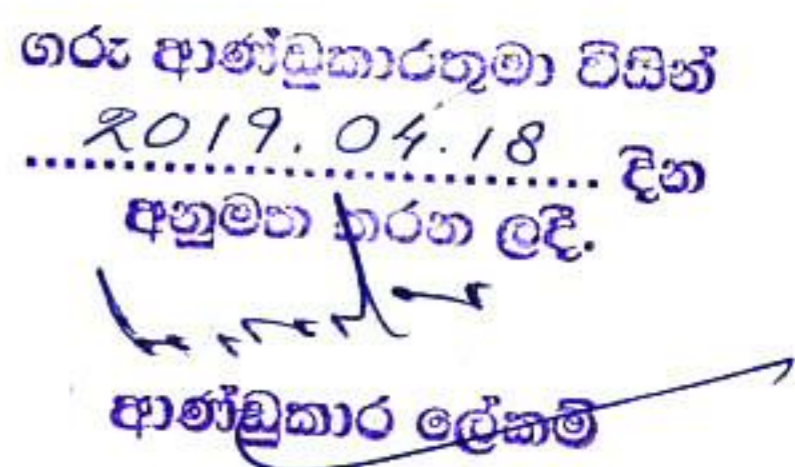 ගරු ආණ්ඩුකාරතුමා විසින්
2019.04.18 දින
අනුමත කරන ලදී.
ආණ්ඩුකාර ලේකම්